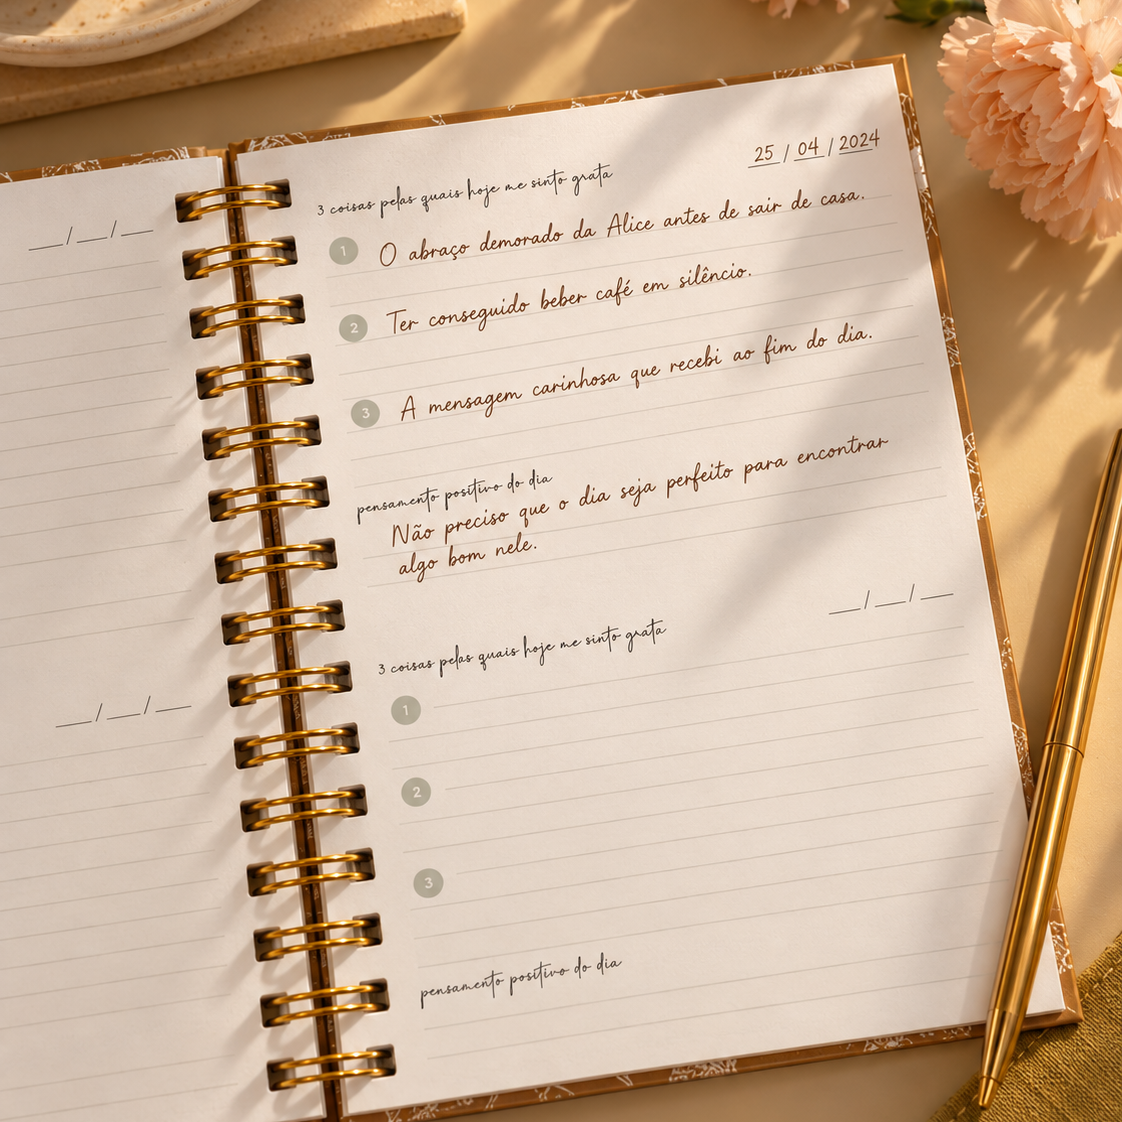 __/__/__
__/__/__
25 / 04 / 2024
3 coisas pelas quais hoje me sinto grata
1 O abraço demorado da Alice antes de sair de casa.
2 Ter conseguido beber café em silêncio.
3 A mensagem carinhosa que recebi ao fim do dia.
pensamento positivo do dia
Não preciso que o dia seja perfeito para encontrar
algo bom nele.
__/__/__
3 coisas pelas quais hoje me sinto grata
1
2
3
pensamento positivo do dia